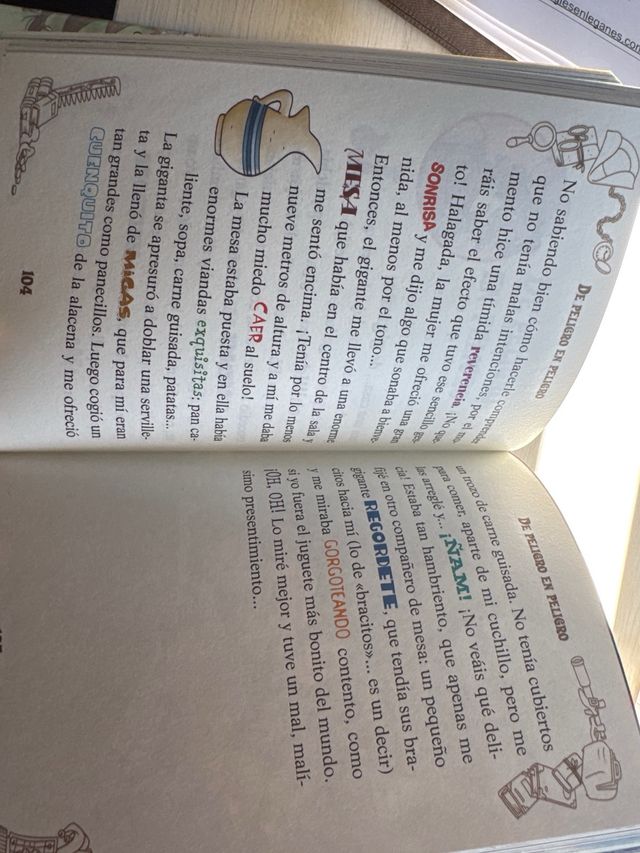 glesenleganes.com
DE PELIGRO EN PELIGRO
No sabiendo bien cómo hacerle comprender
que no tenía malas intenciones, por el mo-
mento hice una tímida reverencia. ¡No que-
ráis saber el efecto que tuvo ese sencillo ges-
to! Halagada, la mujer me ofreció una gran
SONRISA y me dijo algo que sonaba a bienve-
nida, al menos por el tono...
Entonces, el gigante me llevó a una enorme
MESA que había en el centro de la sala y
me sentó encima. ¡Tenía por lo menos
nueve metros de altura y a mí me daba
mucho miedo CAER al suelo!
La mesa estaba puesta y en ella había
enormes viandas exquisitas: pan ca-
liente, sopa, carne guisada, patatas...
La giganta se apresuró a doblar una serville-
ta y la llenó de MIGAS, que para mí eran
tan grandes como panecillos. Luego cogió un
CUENQUITO de la alacena y me ofreció
104
DE PELIGRO EN PELIGRO
un trozo de carne guisada. No tenía cubiertos
para comer, aparte de mi cuchillo, pero me
las arreglé y... ¡ÑAM! ¡No veáis qué deli-
cia! Estaba tan hambriento, que apenas me
fijé en otro compañero de mesa: un pequeño
gigante REGORDETE, que tendía sus bra-
citos hacia mí (lo de «bracitos»... es un decir)
y me miraba GORGOTEANDO contento, como
si yo fuera el juguete más bonito del mundo.
¡OH, OH! Lo miré mejor y tuve un mal, malí-
simo presentimiento...